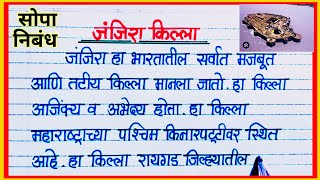 सोपा
निबंध
जंजिरा किल्ला
जंजिरा हा भारतातील सर्वात मजबूत
आणि तटीय किल्ला मानला जातो. हा किल्ला
अजिंक्य व अभेद्य होता. हा किल्ला
महाराष्ट्राच्या पश्चिम किनारपट्टीवर स्थित
आहे. हा किल्ला रायगड जिल्ह्यातील